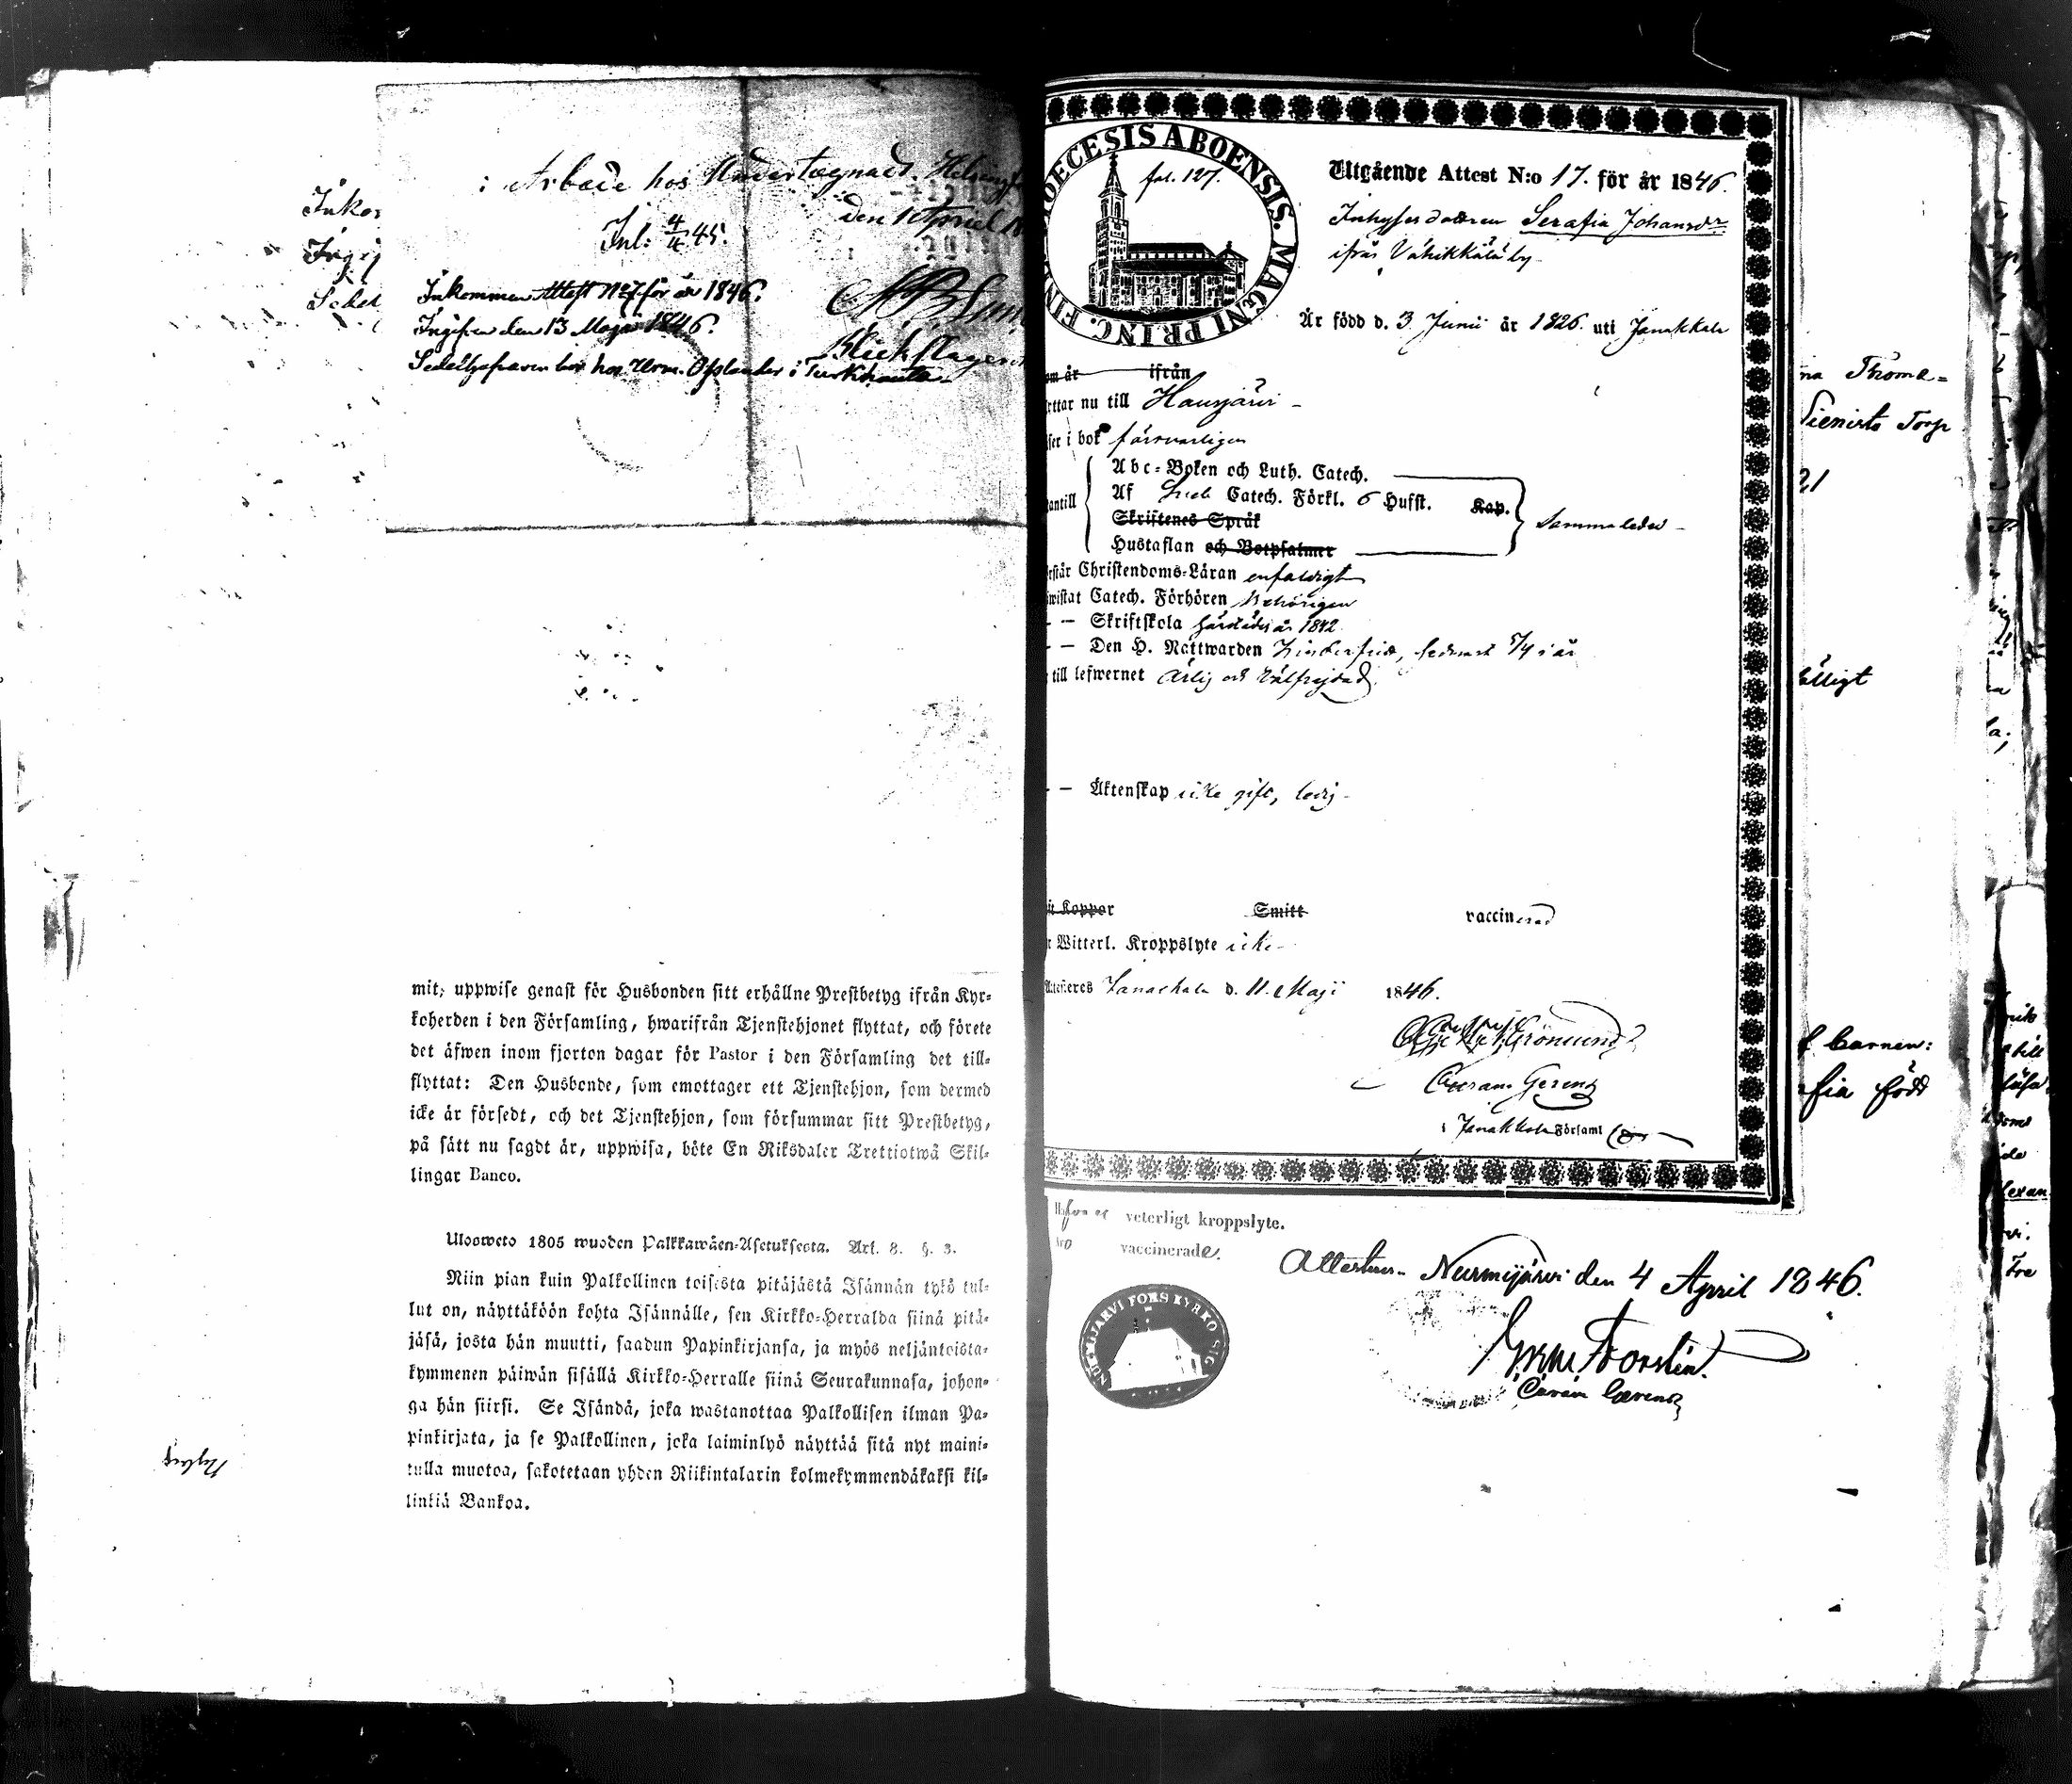 i Arbete hos Undertecknad. Helsingf
den 1 April 18
Inl: 4/4 45.
Inkom
Ingif
Sedel
Inkommen Attest No 7 för år 1846.
Ingifven den 13 Maji 1846.
Sedelhafvaren bor hos Herr. Öhlander i Turkhauta
mit, uppwise genast för Husbonden sitt erhållne Prestbetyg ifrån Kyr-
koherden i den Församling, hwarifrån Tjenstehjonet flyttat, och förete
det äfwen inom fjorton dagar för Pastor i den Församling det till-
flyttat: Den Husbonde, som emottager ett Tjenstehjon, som dermed
icke är försedt, och det Tjenstehjon, som försummar sitt Prestbetyg,
på sätt nu sagdt är, uppwisa, böte En Riksdaler Trettiotwå Skil-
lingar Banco.
Ulosweto 1805 wuoden Palkkawäen-Asetuksesta. Art. 8. §. 3.
Niin pian kuin Palkollinen toisesta pitäjästä Isännän tykö tul-
lut on, näyttäköön kohta Isännälle, sen Kirkko-Herralda siinä pitä-
jäsä, josta hän muutti, saadun Papinkirjansa, ja myös neljäntoista-
kymmenen päiwän sisällä Kirkko-Herralle siinä Seurakunnasa, johon-
ga hän siirsi. Se Isändä, joka wastanottaa Palkollisen ilman Pa-
pinkirjata, ja se Palkollinen, joka laiminlyö näyttää sitä nyt maini-
tulla muotoa, sakotetaan yhden Riikintalarin kolmekymmendäkaksi kil-
linkiä Bankoa.
DIOECESIS ABOENSIS. MAGNI PRINC. FINL
fol. 127.
Utgående Attest N:o 17. för år 1846.
Inhysesdottren Serafia Johansdr
ifrån Vähikkälä by
Är född d. 3 Junii år 1826. uti Janakkala
om är ifrån
yttar nu till Hausjärvi
ser i bok försvarligen
Abc-Boken och Luth. Catech.
antill
Af Sveb Catech. Förkl. 6 Hufst. Kap.
Sammaledes
Skriftenes Språk
Hustaflan och Botpsalmer
rstår Christendoms-Läran enfaldigt
wistat Catech. Förhören behörigen
– – Skriftskola år 1842
– – Den H. Nattwarden hinderfri, sednast 5/4 i år
till lefwernet ärlig och välfrejdad
– – Äktenskap icke gift, ledig
Koppor Smitt vaccinerad
Witterl. Kroppslyte icke
Attesteres Janakkala d. 11. Maji 1846.
Grönlund
Curam Gerens
i Janakkala Församl
veterligt kroppslyte.
vaccinerade.
Attesterar Nurmijärvi den 4 April 1846.
NURMIJARVI FORS KYRKO SIG
Forslin
Curam Gerens
na Thoma=
Torp
21
älligt
Barnen:
fia född